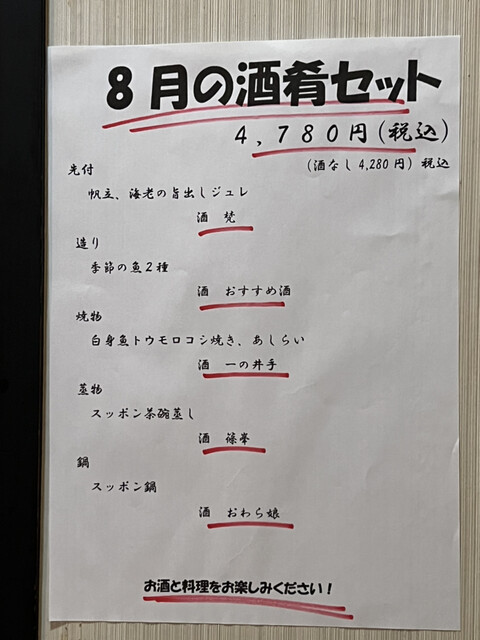 8月の酒肴セット
4,780円(税込)
(酒なし4,280円) 税込
先付
帆立、海老の旨出しジュレ
酒 梵
造り
季節の魚2種
酒 おすすめ酒
焼物
白身魚トウモロコシ焼き、あしらい
酒 一の井手
蒸物
スッポン茶碗蒸し
酒 篠峯
鍋
スッポン鍋
酒 おわら娘
お酒と料理をお楽しみください!